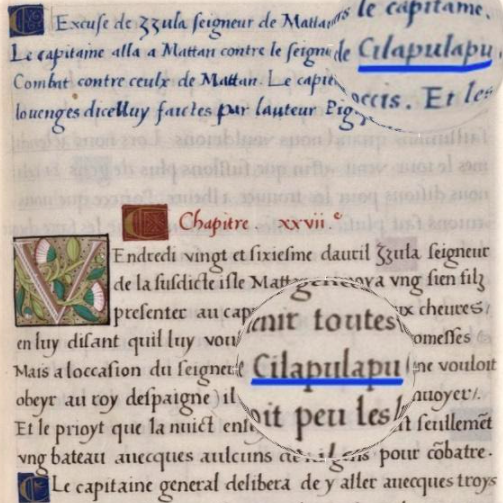 Excuse de Zzula seigneur de Mattan
Le capitaine alla a Mattan contre le seigne
Combat contre ceulx de Mattan. Le capit
louenges dicelluy faictes par lauteur Pig
le capitame.
de Cilapulapu
occis. Et les
Chapitre xxvii.e
VEndredi vingt et sixiesme dauril Zzula seigneur
de la susdicte isle Matt voya vng sien filz
presenter au cap ux cheures
en luy disant quil luy vou omesses
Mais a loccasion du seigneur ne vouloit
obeyr au roy despaigne) il nuoyer/.
Et le prioyt que la nuict ens t seullemēt
vng bateau auecques aulcuns de gens pour cōbatre.
Le capitaine general delibera de y aller auecques troys
enir toutes
Cilapulapu
oit peu les